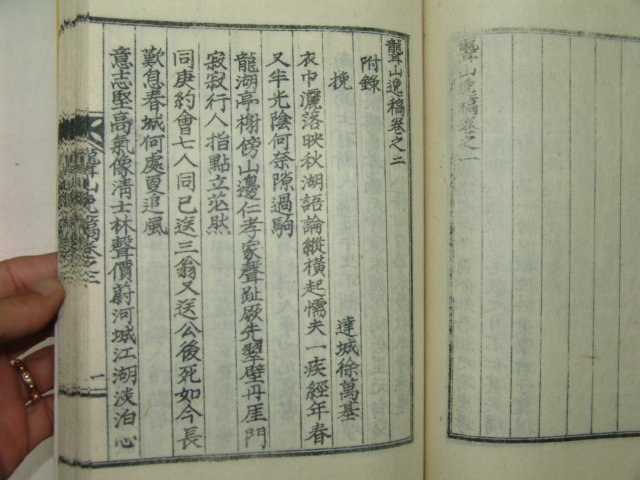 聾山逸稿卷之一
聾山逸稿卷之二
附錄
挽 達城徐萬基
衣巾灑落映秋湖語論縱橫起懦夫一疾經年春
又半光陰何奈隙過駒
龍湖亭榭傍山邊仁孝家聲趾厥先翠壁丹厓門
寂寂行人指點立茫然
同庚約會七人同已送三翁又送公後死如今長
歎息春城何處更追風
意志堅高氣像清士林聲價蔚河城江湖淡泊心
聾山逸稿卷之二 一